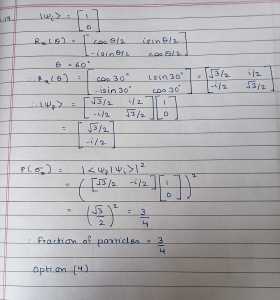 |ψᵢ> = [1 0]
Rₓ(θ) = [cos θ/2 isin θ/2 -isin θ/2 cos θ/2]
θ = 60°
∴ Rₓ(θ) = [cos 30° isin 30° -isin 30° cos 30°] = [√3/2 i/2 -i/2 √3/2]
∴ |ψ₂> = [√3/2 i/2 -i/2 √3/2] [1 0]
= [√3/2 -i/2]
P(σ₂) = |<ψ₂|ψᵢ>|²
= ([√3/2 -i/2] [1 0])²
= (√3/2)² = 3/4
∴ Fraction of particles = 3/4
Option (4)